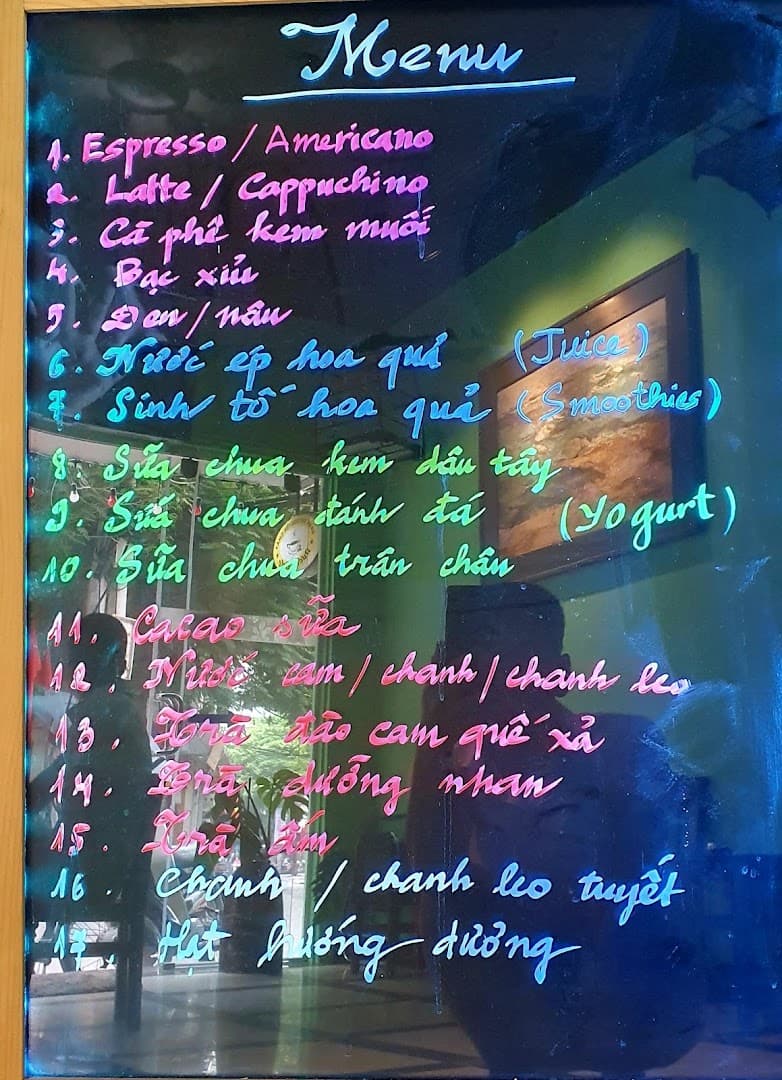 Menu
1. Espresso / Americano
2. Latte / Cappuchino
3. Cà phê kem muối
4. Bạc xỉu
5. Đen / nâu
6. Nước ép hoa quả (Juice)
7. Sinh tố hoa quả (Smoothies)
8. Sữa chua kem dâu tây
9. Sữa chua đánh đá (Yogurt)
10. Sữa chua trân châu
11. Cacao sữa
12. Nước cam / chanh / chanh leo
13. Trà đào cam quế xả
14. Trà dưỡng nhan
15. Trà ấm
16. Chanh / chanh leo tuyết
17. Hạt hướng dương